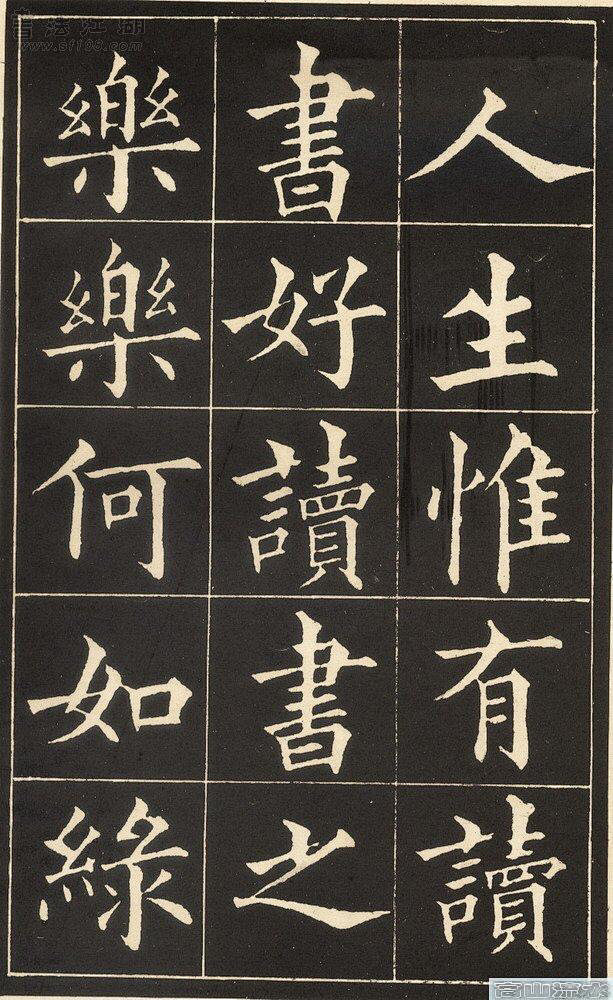 人生惟有讀
書好讀書之
樂樂何如綠
書法江湖
www.sf108.com
高山流水